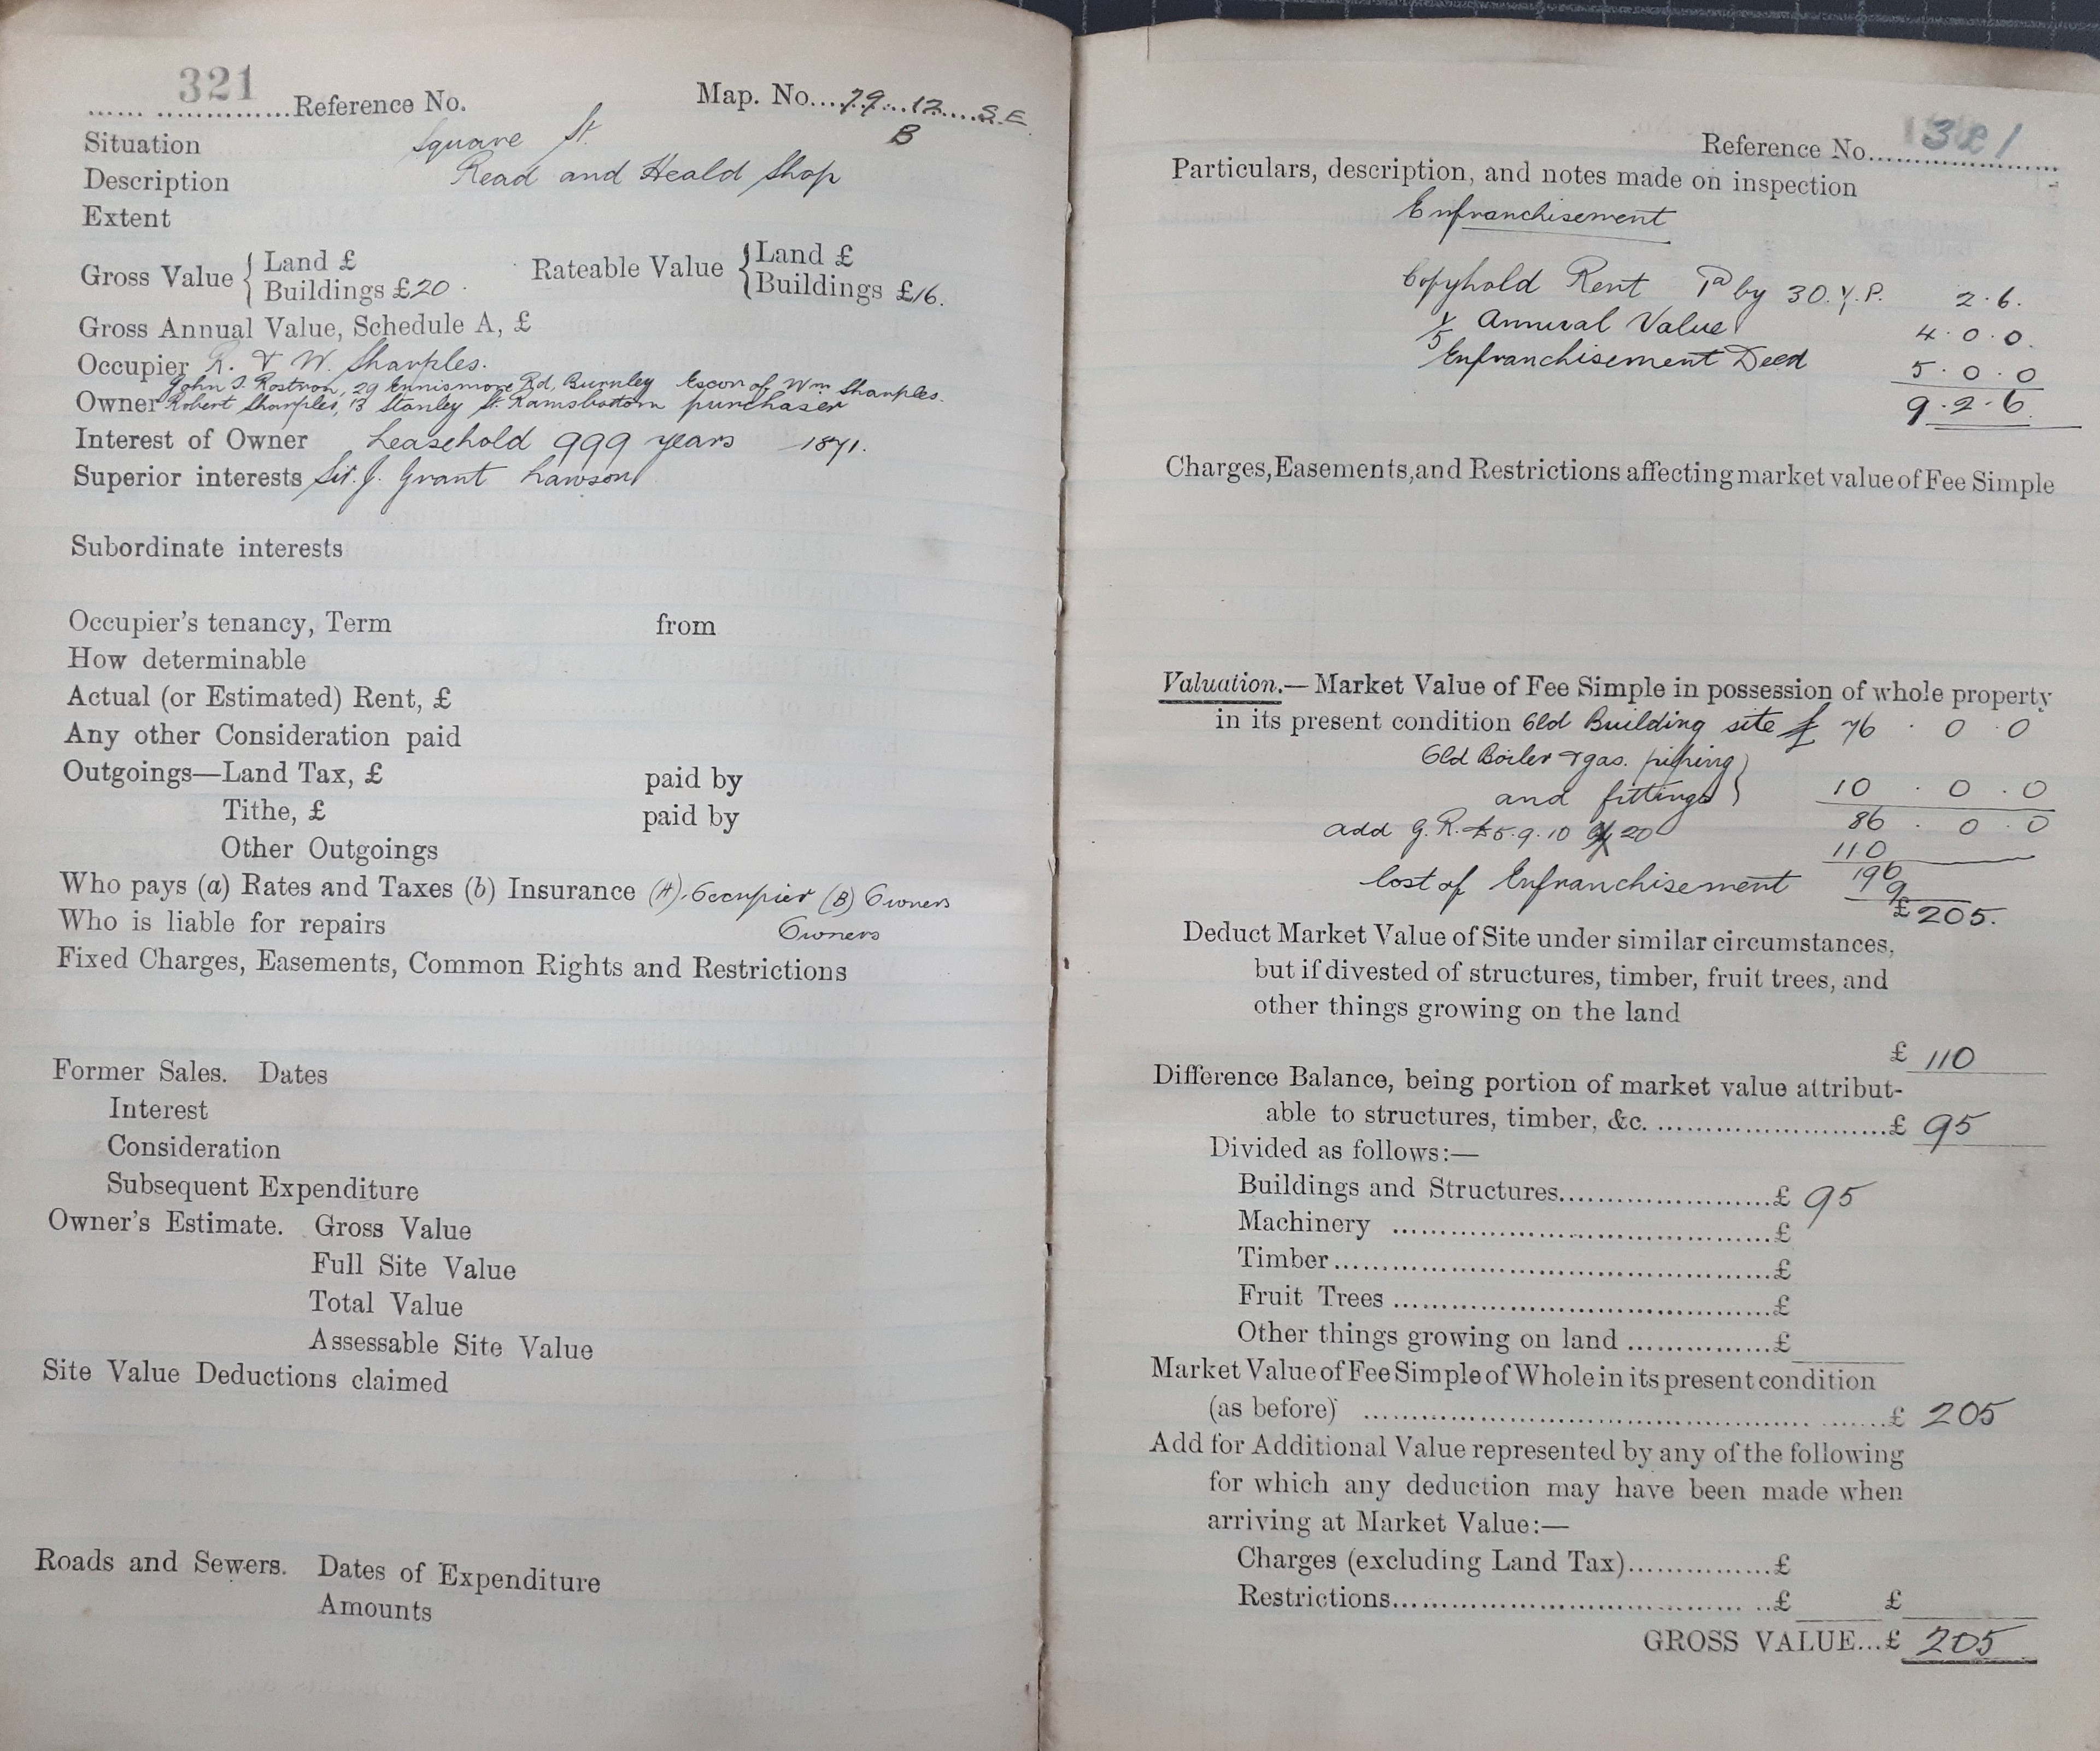 321 Reference No. Map. No. 79 12 S.E.
B
Situation Square St.
Description Read and Heald Shop
Extent
Gross Value { Land £ Rateable Value { Land £
Buildings £20. Buildings £16.
Gross Annual Value, Schedule A, £
Occupier R. & W. Sharples.
John S. Rostron, 29 Ennismore Rd, Burnley Excor of Wm Sharples.
Owner Robert Sharples, 13 Stanley St. Ramsbottom purchaser
Interest of Owner Leasehold 999 years 1871.
Superior interests Sir. J. Grant Lawson
Subordinate interests
Occupier's tenancy, Term from
How determinable
Actual (or Estimated) Rent, £
Any other Consideration paid
Outgoings—Land Tax, £ paid by
Tithe, £ paid by
Other Outgoings
Who pays (a) Rates and Taxes (b) Insurance (A). Occupier (B) Owners
Who is liable for repairs Owners
Fixed Charges, Easements, Common Rights and Restrictions
Former Sales. Dates
Interest
Consideration
Subsequent Expenditure
Owner's Estimate. Gross Value
Full Site Value
Total Value
Assessable Site Value
Site Value Deductions claimed
Roads and Sewers. Dates of Expenditure
Amounts
Reference No. 321
Particulars, description, and notes made on inspection
Enfranchisement
Copyhold Rent 1d by 30. Y.P. 2.6.
1/5 Annual Value 4.0.0.
Enfranchisement Deed 5.0.0
9.2.6.
Charges, Easements, and Restrictions affecting market value of Fee Simple
Valuation.— Market Value of Fee Simple in possession of whole property
in its present condition Old Building site £ 76 . 0 . 0
Old Boiler & gas. piping }
and fittings } 10 . 0 . 0
86 . 0 . 0
add G.R. £5.9.10 20 110
196
Cost of Enfranchisement 9
£205.
Deduct Market Value of Site under similar circumstances,
but if divested of structures, timber, fruit trees, and
other things growing on the land
£ 110
Difference Balance, being portion of market value attribut-
able to structures, timber, &c. £ 95
Divided as follows:—
Buildings and Structures £ 95
Machinery £
Timber £
Fruit Trees £
Other things growing on land £
Market Value of Fee Simple of Whole in its present condition
(as before) £ 205
Add for Additional Value represented by any of the following
for which any deduction may have been made when
arriving at Market Value:—
Charges (excluding Land Tax) £
Restrictions £ £
GROSS VALUE...£ 205